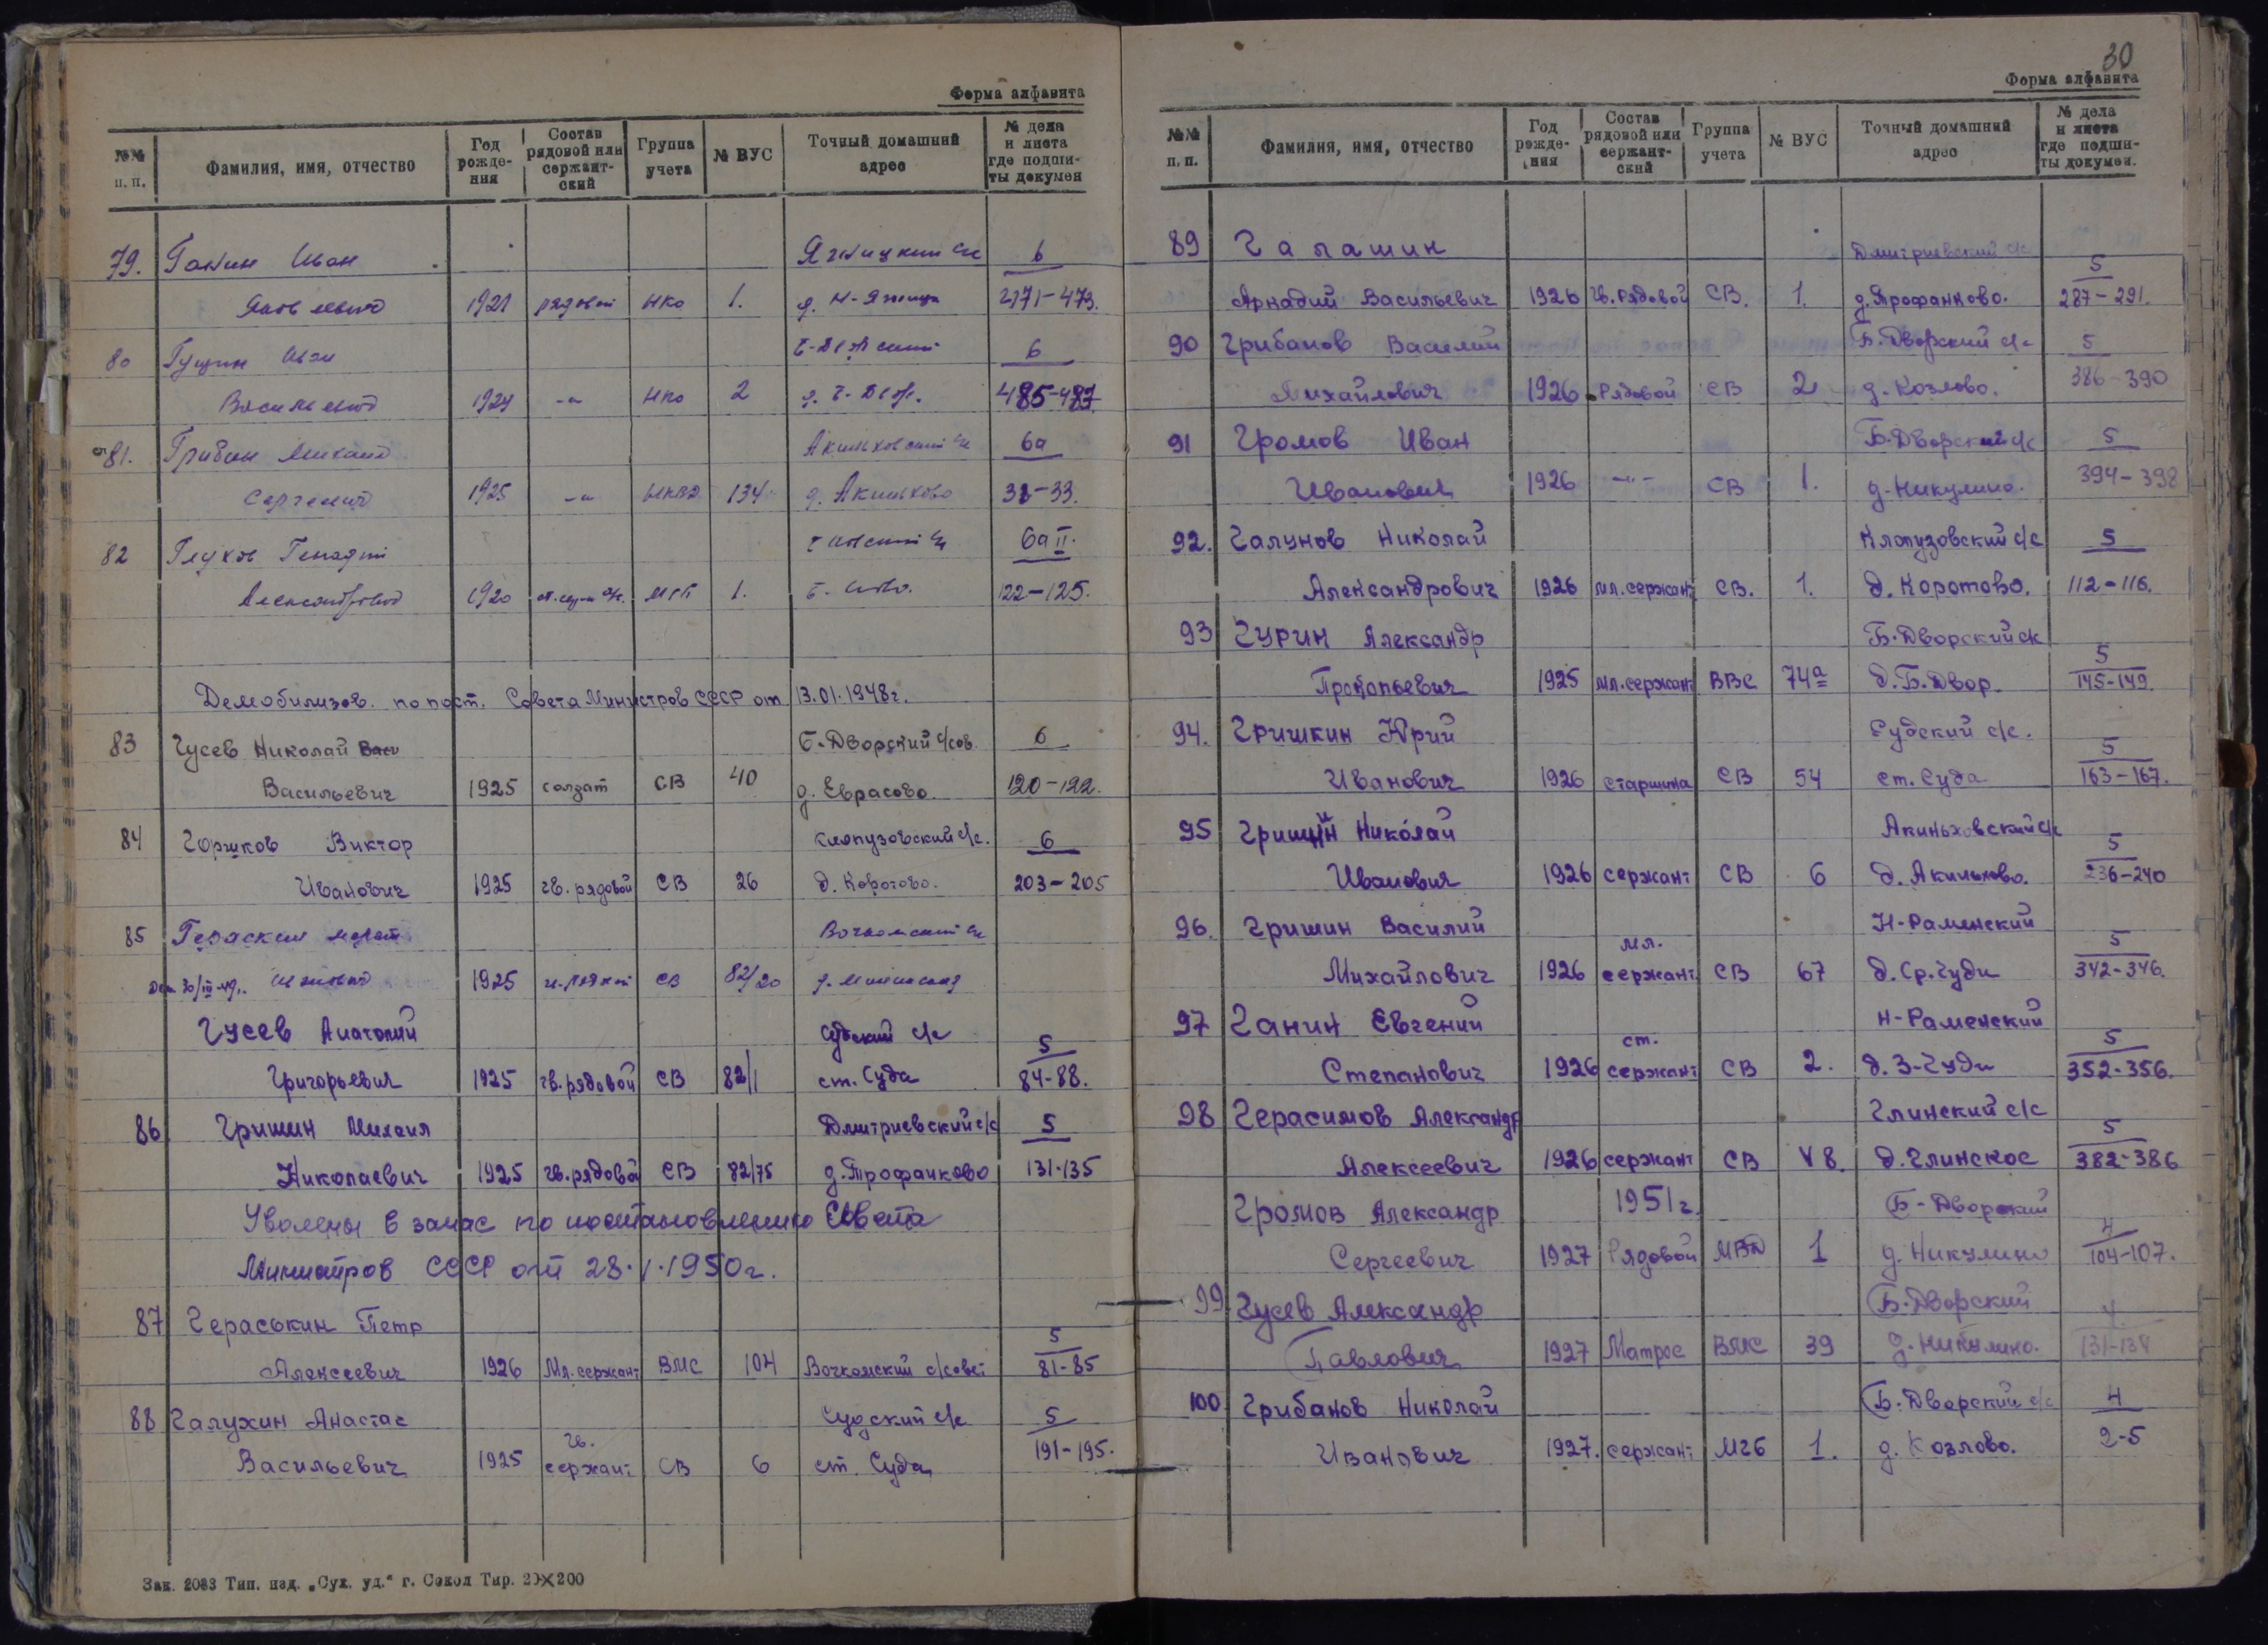 Форма алфавита
№№ п. п. Фамилия, имя, отчество Год рожде- ния Состав рядовой или сержант- ский Группа учета № ВУС Точный домашний адрес № дела и листа где подши- ты докумен
79. Ганин Иван Ягницкий с/с 6
Яковлевич 1921 рядовой НКО 1. д. Н-Ягница 471-473.
80 Гущин Иван Б-Дворский 6
Васильевич 1924 -"- НКО 2 д. Б-Двор. 485-487
81. Грибин Михаил Акиньховский с/с 6а
Сергеевич 1925 -"- НКВД 134 д. Акиньхово 31-33.
82 Глухов Генадий с/с 6а II.
Александрович 1920 1. 122-125.
Демобилизов. по пост. Совета Министров СССР от 13.01.1948г.
83 Гусев Николай Васи Б-Дворский с/сов. 6
Васильевич 1925 солдат СВ 40 д. Еврасово. 120-122.
84 Горшков Виктор Клопузовский с/с. 6
Иванович 1925 гв. рядовой СВ 26 д. Коротово. 203-205
85 Гераскин Вочкомский с/с
1925 СВ 82/20
Гусев Анатолий Судский с/с 5
Григорьевич 1925 гв. рядовой СВ 82/1 ст. Суда 84-88.
86 Гришин Михаил Дмитриевский с/с 5
Николаевич 1925 гв. рядовой СВ 82/75 д. Трофанково 131-135
Уволены в запас по постановлению Совета
Министров СССР от 28.I.1950г.
87 Гераськин Петр 5
Алексеевич 1926 Мл. сержант ВМС 104 Вочкомский с/совет 81-85
88 Галухин Анастас Судский с/с 5
Васильевич 1925 гв. сержант СВ 6 ст. Суда 191-195.
Зак. 2083 Тип. изд. „Сух. уд.“ г. Сокол Тир. 20×200
30
Форма алфавита
№№ п. п. Фамилия, имя, отчество Год рожде- ния Состав рядовой или сержант- ский Группа учета № ВУС Точный домашний адрес № дела и листа где подши- ты докумен.
89 Галашин Дмитриевский с/с 5
Аркадий Васильевич 1926 гв. рядовой СВ. 1. д. Трофанково. 287-291.
90 Грибанов Василий Б. Дворский с/с 5
Михайлович 1926 Рядовой СВ 2 д. Козлово. 386-390
91 Громов Иван Б. Дворский с/с 5
Иванович 1926 -"- СВ 1. д. Никулино. 394-398
92. Галунов Николай Клопузовский с/с 5
Александрович 1926 мл. сержант СВ. 1. д. Коротово. 112-116.
93 Гурин Александр Б. Дворский с/с 5
Прокопьевич 1925 мл. сержант ВВС 74а д. Б. Двор. 145-149.
94. Гришкин Юрий Судский с/с. 5
Иванович 1926 старшина СВ 54 ст. Суда 163-167.
95 Гришин Николай Акиньховский с/с 5
Иванович 1926 сержант СВ 6 д. Акиньхово. 236-240
96. Гришин Василий Н-Раменский 5
Михайлович 1926 мл. сержант СВ 67 д. Ср. Чуди 342-346.
97 Ганин Евгений Н-Раменский 5
Степанович 1926 ст. сержант СВ 2. д. З-Чуди 352-356.
98 Герасимов Александр Глинский с/с 5
Алексеевич 1926 сержант СВ V8. д. Глинское 382-386
Громов Александр 1951г. Б-Дворский 4
Сергеевич 1927 Рядовой МВД 1 д. Никулино 104-107.
99 Гусев Александр Б-Дворский 4
Павлович 1927 Матрос ВМС 39 д. Никулино. 131-134
100 Грибанов Николай Б. Дворский с/с 4
Иванович 1927. сержант МГБ 1. д. Козлово. 2-5